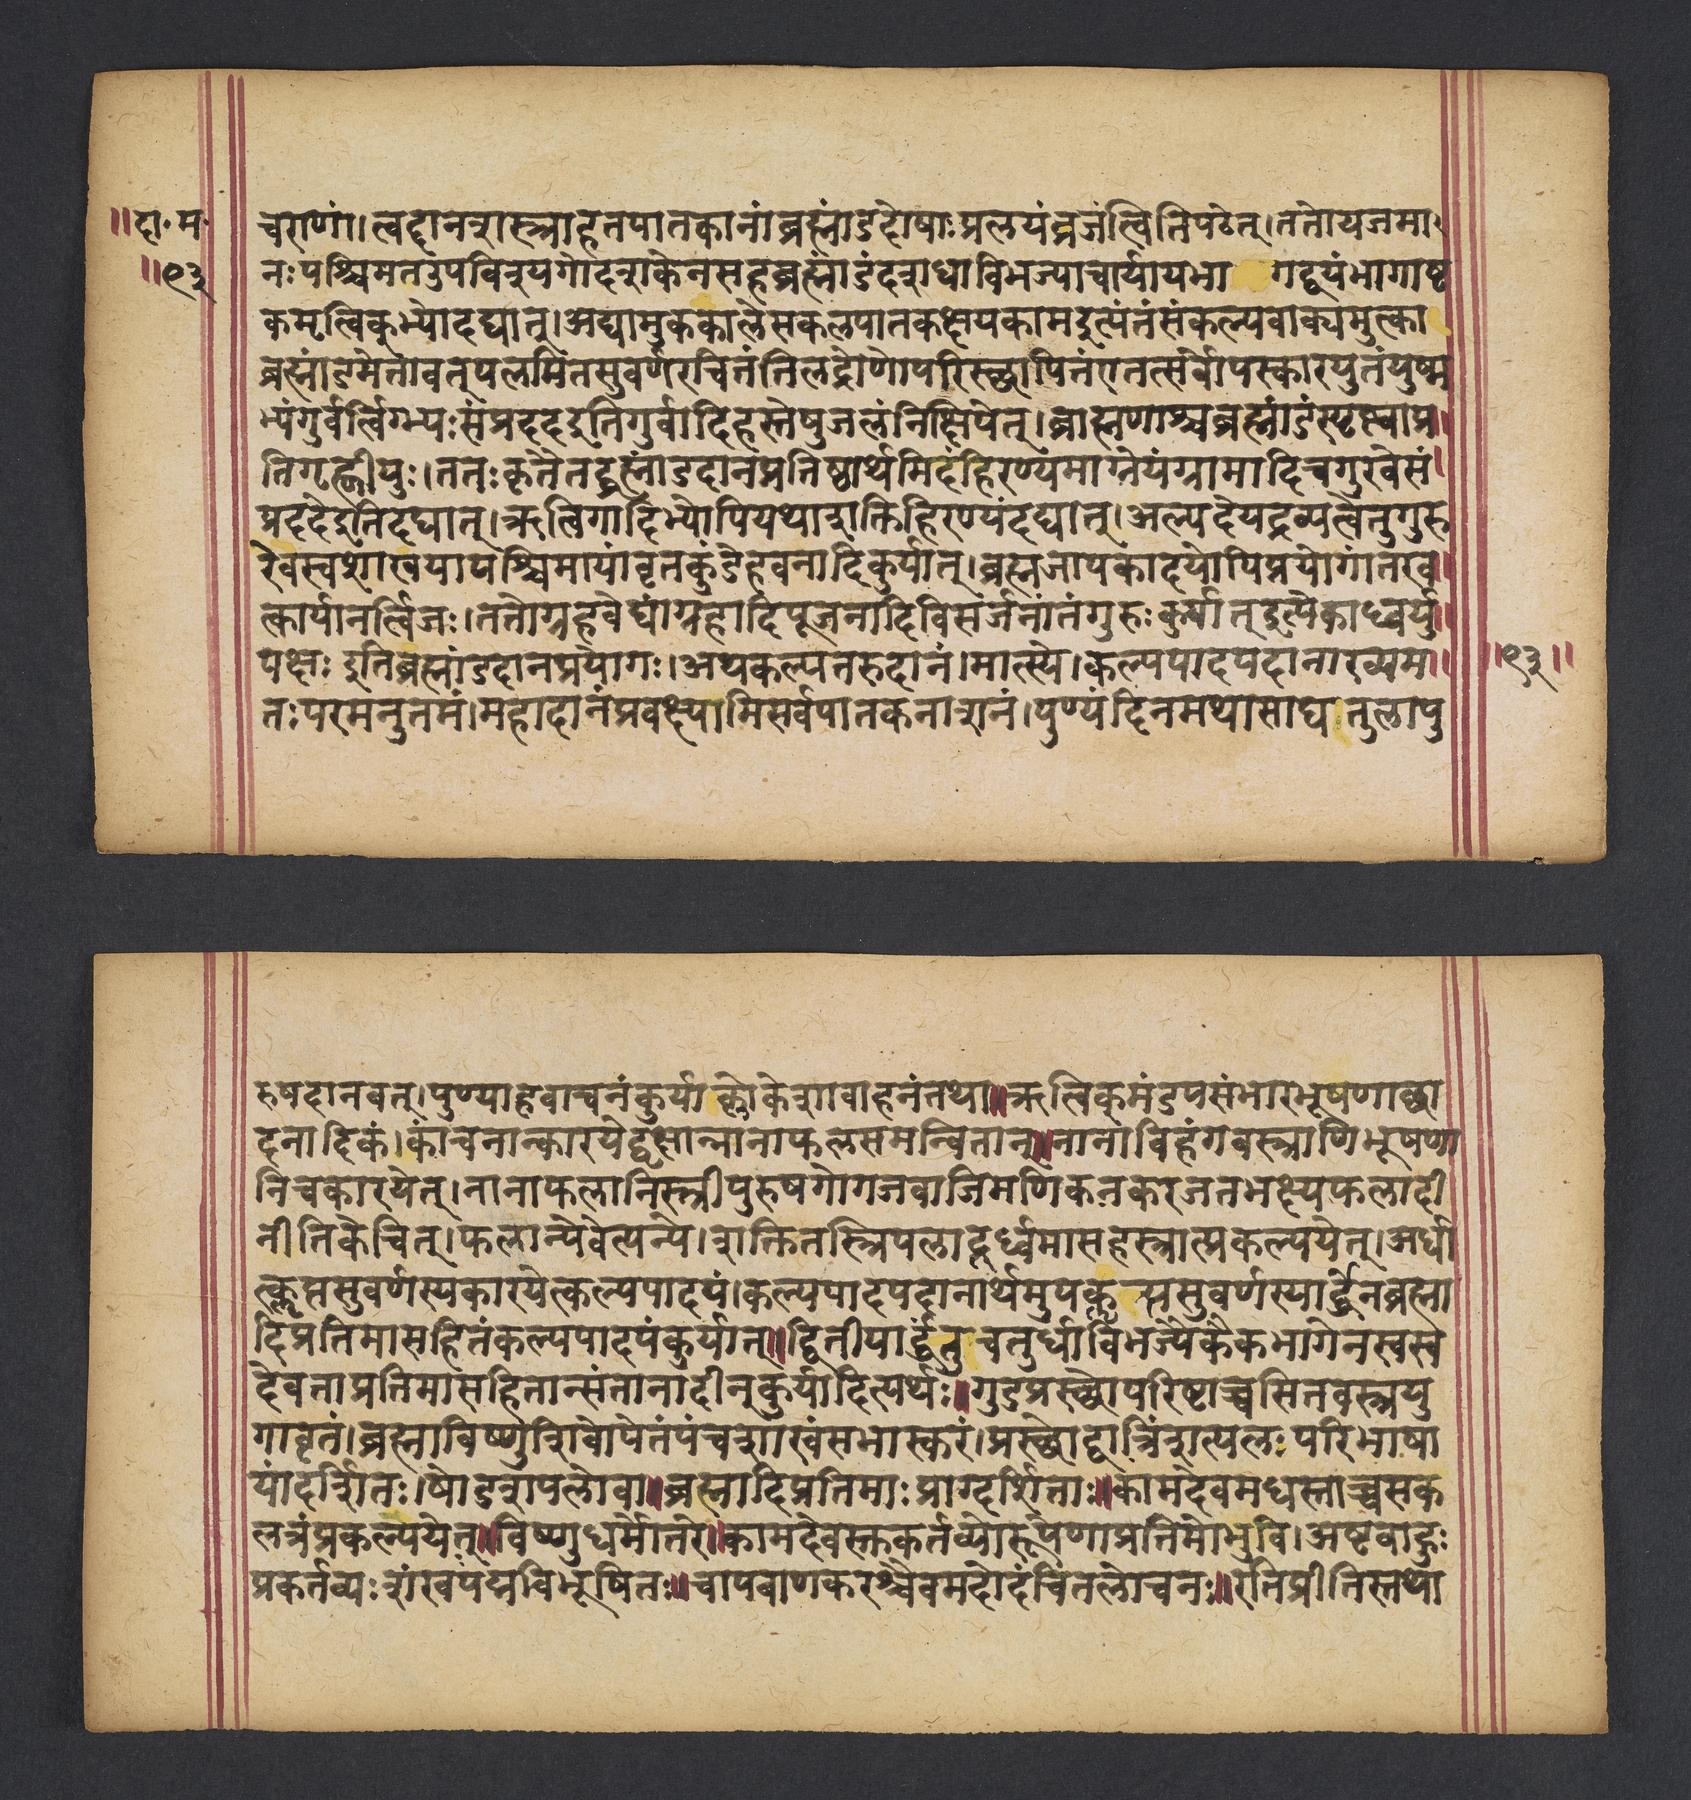 ॥दा॰म॰
॥९३
चराणां।त्वद्दानशस्त्राहतपातकानांब्रह्मांडदोषाःप्रलयंव्रजंत्वितिपठेत्।ततोयजमा
नःपश्चिमतउपविश्यगोदशकेनसहब्रह्मांडंदशधाविभज्याचार्यायभा गद्वयंभागाष्ट
कमृत्विक्भ्योदद्यात्।अद्यामुककालेसकलपातकक्षयकामइत्यंतंसंकल्पवाक्यमुत्का
ब्रह्मांडमेतावत्पलमितसुवर्णरचितंतिलद्रोणोपरिस्छापितंएतत्सर्वोपस्कारयुतंयुष्म
भ्यंगुर्वर्त्विग्भ्यःसंप्रददइतिगुर्वादिहस्तेषुजलंनिक्षिपेत्।ब्राह्मणाश्चब्रह्मांडंस्पृष्ट्वाप्र
तिगृह्णीयुः।ततःकृतैतद्ब्रह्मांडदानप्रतिष्ठार्थमिदंहिरण्यंमाग्नेयंग्रामादिचगुरवेसं
प्रददेइतिदद्यात्।ऋत्विगादिभ्योपियथाशक्तिहिरण्यंदद्यात्।अल्पदेयद्रव्यत्वेतुगुरु
रेवस्वशाखयापश्चिमायांवृतकुंडेहवनादिकुर्यात्।ब्रह्मजापकादयोपिप्रयोगांतरव
त्कार्यानर्त्विजः।ततोग्रहवेद्यांग्रहादिपूजनादिविसर्जनांतंगुरुःकुर्यात्इत्येकाध्वर्यु
पक्षः इतिब्रह्मांडदानप्रयोगः।अथकल्पतरुदानं।मात्स्ये।कल्पपादपदानारव्यम
॥९३॥
तःपरमनुतमं।महादानंप्रवक्ष्यामिसर्वपातकनाशनं।पुण्यंदिनमथासाद्य तुलापु
रुषदानवत्।पुण्याहवाचनंकुर्याल्लोकेशावाहनंतथा॥ऋत्विक्मंडपसंभारभूषणाछा
दनादिकं।कांचनान्कारयेद्वृक्षान्नानाफलसमन्वितान्॥नानाविहंगवस्त्राणिभूषणा
निचकारयेत्।नानाफलानिस्त्रीपुरुषगोगजवाजिमणिकनकरजतभक्ष्यफलादी
नीतिकेचित्।फलान्येवेत्यन्ये।शक्तितस्त्रिपलादूर्ध्वमासहस्त्रात्प्रकल्पयेत्।अर्धा
त्कॢप्तसुवर्णस्यकारयेत्कल्पपादपं।कल्पपादपदानार्थमुपकॢ प्तसुवर्णस्यार्द्धेनब्रह्मा
दिप्रतिमासहितंकल्पपादपंकुर्यात्॥द्वितीयार्द्धंतुचतुर्धाविभज्यैकैकभागेनस्वस्व
देवताप्रतिमासहितान्संतानादीन्कुर्यादित्यर्थः॥गुडप्रस्छोपरिष्टाच्चसितवस्त्रयु
गावृतं।ब्रह्माविष्णुशिवोपेतंपंचशाखंसभास्करं।प्रस्छोद्वात्रिंशत्पलःपरिभाषा
यांदर्शितः।षोडशपलोवा॥ब्रह्मादिप्रतिमाःप्राग्दर्शिताः॥कामदेवमधस्ताच्चसक
लत्रंप्रकल्पयेत्॥विष्णुधर्मोतरे॥कामदेवस्तकर्तव्योरूपेणाप्रतिमोभुवि।अष्टबाहुः
प्रकर्तव्यःशंखपद्मविभूषितः॥चापबाणकरश्चैवमदोदंचितलोचनः॥रतिप्रीतिस्तथा